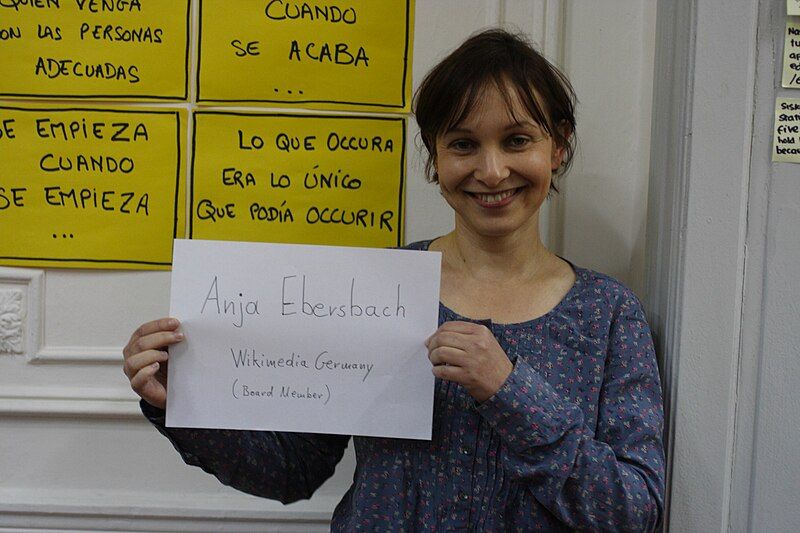 QUIEN VENGA
SON LAS PERSONAS
ADECUADAS
CUANDO
SE ACABA
...
SE EMPIEZA
CUANDO
SE EMPIEZA
...
LO QUE OCCURA
ERA LO ÚNICO
QUE PODÍA OCCURIR
Anja Ebersbach
Wikimedia Germany
(Board Member)
No
tu
ap
ed
/e
Sisk
stat
five
hold
becau